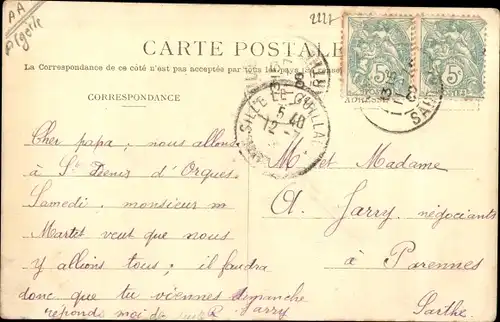 AA
Algérie
2227
CARTE POSTALE
La Correspondance de ce côté n'est pas acceptée par tous les pays
CORRESPONDANCE
ADRESSE
5c
5c
SILLÉ LE GUILLAUME
5 40
12 - 7
08
Cher papa, nous allons
à St Denis d'Orques
Samedi, monsieur
Martel veut que nous
y allions tous; il faudra
donc que tu viennes dimanche
réponds moi de suite
R Jarry
Mr et Madame
A. Jarry, négociants
à Parennes
Sarthe